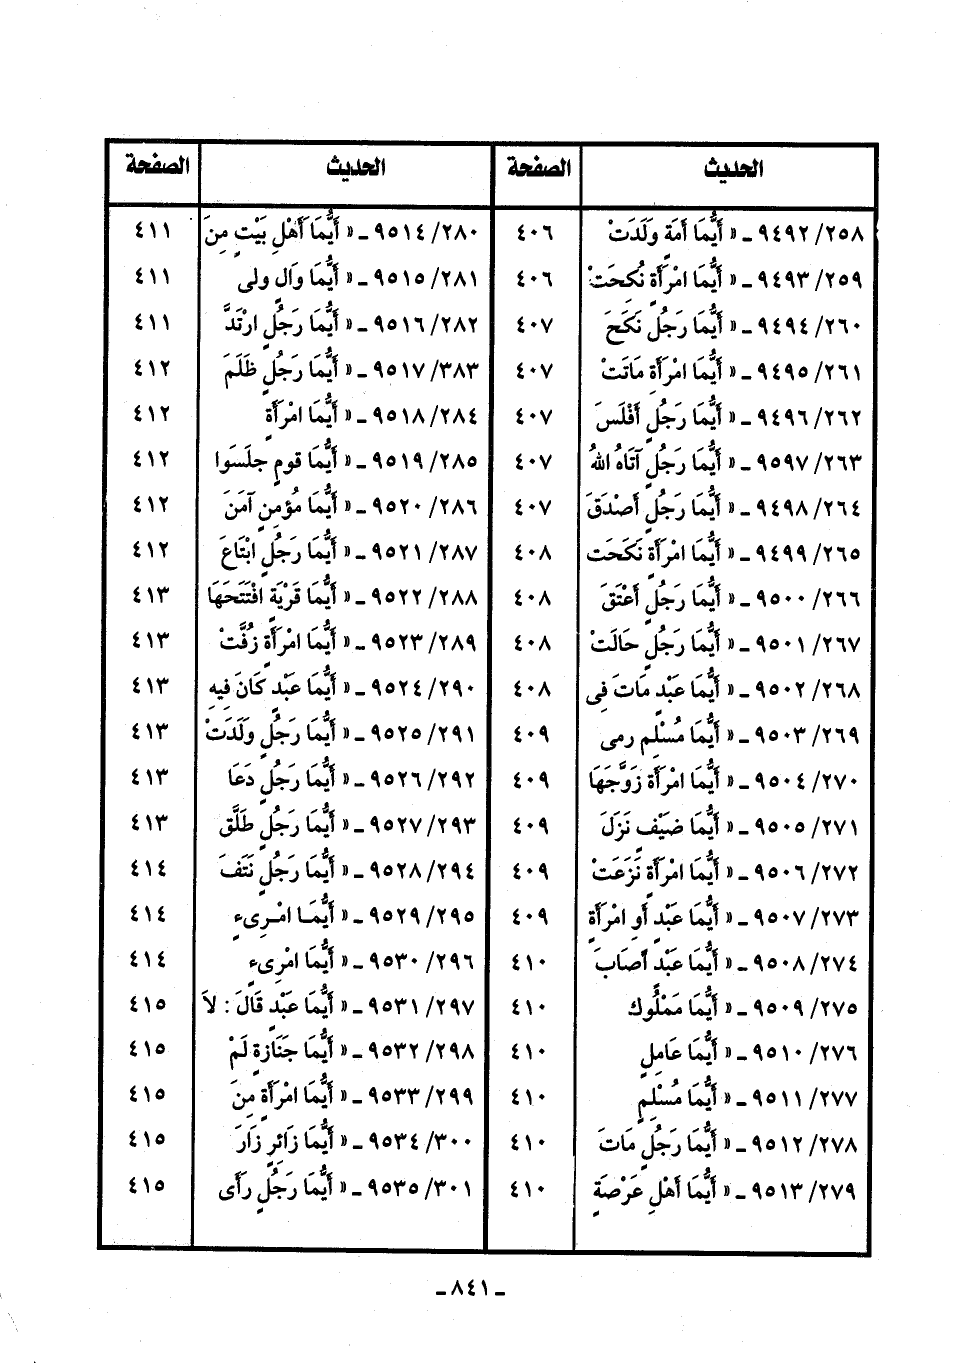 الحديث الصفحة الحديث الصفحة
٢٥٨/ ٩٤٩٢ ـ « أَيُّمَا أَمَةٍ وَلَدَتْ ٤٠٦ ٢٨٠/ ٩٥١٤ ـ « أَيُّمَا أَهْلِ بَيْتٍ مِنَ ٤١١
٢٥٩/ ٩٤٩٣ ـ « أَيُّمَا امْرَأَةٍ نُكِحَتْ ٤٠٦ ٢٨١/ ٩٥١٥ ـ « أَيُّمَا وَالٍ ولى ٤١١
٢٦٠/ ٩٤٩٤ ـ « أَيُّمَا رَجُلٍ نَكَحَ ٤٠٧ ٢٨٢/ ٩٥١٦ ـ « أَيُّمَا رَجُلٍ ارْتَدَّ ٤١١
٢٦١/ ٩٤٩٥ ـ « أَيُّمَا امْرَأَةٍ مَاتَتْ ٤٠٧ ٣٨٣/ ٩٥١٧ ـ « أَيُّمَا رَجُلٍ ظَلَمَ ٤١٢
٢٦٢/ ٩٤٩٦ ـ « أَيُّمَا رَجُلٍ أَفْلَسَ ٤٠٧ ٢٨٤/ ٩٥١٨ ـ « أَيُّمَا امْرَأَةٍ ٤١٢
٢٦٣/ ٩٥٩٧ ـ « أَيُّمَا رَجُلٍ آتَاهُ اللهُ ٤٠٧ ٢٨٥/ ٩٥١٩ ـ « أَيُّمَا قومٍ جلَسَوا ٤١٢
٢٦٤/ ٩٤٩٨ ـ « أَيُّمَا رَجُلٍ أَصْدَقَ ٤٠٧ ٢٨٦/ ٩٥٢٠ ـ « أَيُّمَا مُؤْمِنٍ آمَنَ ٤١٢
٢٦٥/ ٩٤٩٩ ـ « أَيُّمَا امْرَأَةٍ نَكَحَت ٤٠٨ ٢٨٧/ ٩٥٢١ ـ « أَيُّمَا رَجُلٍ ابْتَاعَ ٤١٢
٢٦٦/ ٩٥٠٠ ـ « أَيُّمَا رَجُلٍ أَعْتَقَ ٤٠٨ ٢٨٨/ ٩٥٢٢ ـ « أَيُّمَا قَرْيَةٍ افْتَتَحَهَا ٤١٣
٢٦٧/ ٩٥٠١ ـ « أَيُّمَا رَجُلٍ حَالَتْ ٤٠٨ ٢٨٩/ ٩٥٢٣ ـ « أَيُّمَا امْرَأَةٍ زُفَّتْ ٤١٣
٢٦٨/ ٩٥٠٢ ـ « أَيُّمَا عَبْدٍ مَاتَ فِى ٤٠٨ ٢٩٠/ ٩٥٢٤ ـ « أَيُّمَا عَبْدٍ كَانَ فِيهِ ٤١٣
٢٦٩/ ٩٥٠٣ ـ « أَيُّمَا مُسْلِمٍ رمى ٤٠٩ ٢٩١/ ٩٥٢٥ ـ « أَيُّمَا رَجُلٍ وَلَدَتْ ٤١٣
٢٧٠/ ٩٥٠٤ ـ « أَيُّمَا امْرَأَةٍ زَوَّجَهَا ٤٠٩ ٢٩٢/ ٩٥٢٦ ـ « أَيُّمَا رَجُلٍ دَعَا ٤١٣
٢٧١/ ٩٥٠٥ ـ « أَيُّمَا ضَيْفٍ نَزَلَ ٤٠٩ ٢٩٣/ ٩٥٢٧ ـ « أَيُّمَا رَجُلٍ طَلَّقَ ٤١٣
٢٧٢/ ٩٥٠٦ ـ « أَيُّمَا امْرَأَةٍ نَزَعَتْ ٤٠٩ ٢٩٤/ ٩٥٢٨ ـ « أَيُّمَا رَجُلٍ نَتَفَ ٤١٤
٢٧٣/ ٩٥٠٧ ـ « أَيُّمَا عَبْدٍ أَوِ امْرَأَةٍ ٤٠٩ ٢٩٥/ ٩٥٢٩ ـ « أَيُّمَـا امْـرِىءٍ ٤١٤
٢٧٤/ ٩٥٠٨ ـ « أَيُّمَا عَبْدٍ أَصَابَ ٤١٠ ٢٩٦/ ٩٥٣٠ ـ « أَيُّمَا امْرِىءٍ ٤١٤
٢٧٥/ ٩٥٠٩ ـ « أَيُّمَا مَمْلُوكٍ ٤١٠ ٢٩٧/ ٩٥٣١ ـ « أَيُّمَا عَبْدٍ قَالَ : لاَ ٤١٥
٢٧٦/ ٩٥١٠ ـ « أَيُّمَا عَامِلٍ ٤١٠ ٢٩٨/ ٩٥٣٢ ـ « أَيُّمَا جَنَازَةٍ لَمْ ٤١٥
٢٧٧/ ٩٥١١ ـ « أَيُّمَا مُسْلِمٍ ٤١٠ ٢٩٩/ ٩٥٣٣ ـ « أَيُّمَا امْرَأَةٍ مِنَ ٤١٥
٢٧٨/ ٩٥١٢ ـ « أَيُّمَا رَجُلٍ مَاتَ ٤١٠ ٣٠٠/ ٩٥٣٤ ـ « أَيُّمَا زَائِرٍ زَارَ ٤١٥
٢٧٩/ ٩٥١٣ ـ « أَيُّمَا أَهْلِ عَرْصَةٍ ٤١٠ ٣٠١/ ٩٥٣٥ ـ « أَيُّمَا رَجُلٍ رَأَى ٤١٥
ـ ٨٤١ ـ